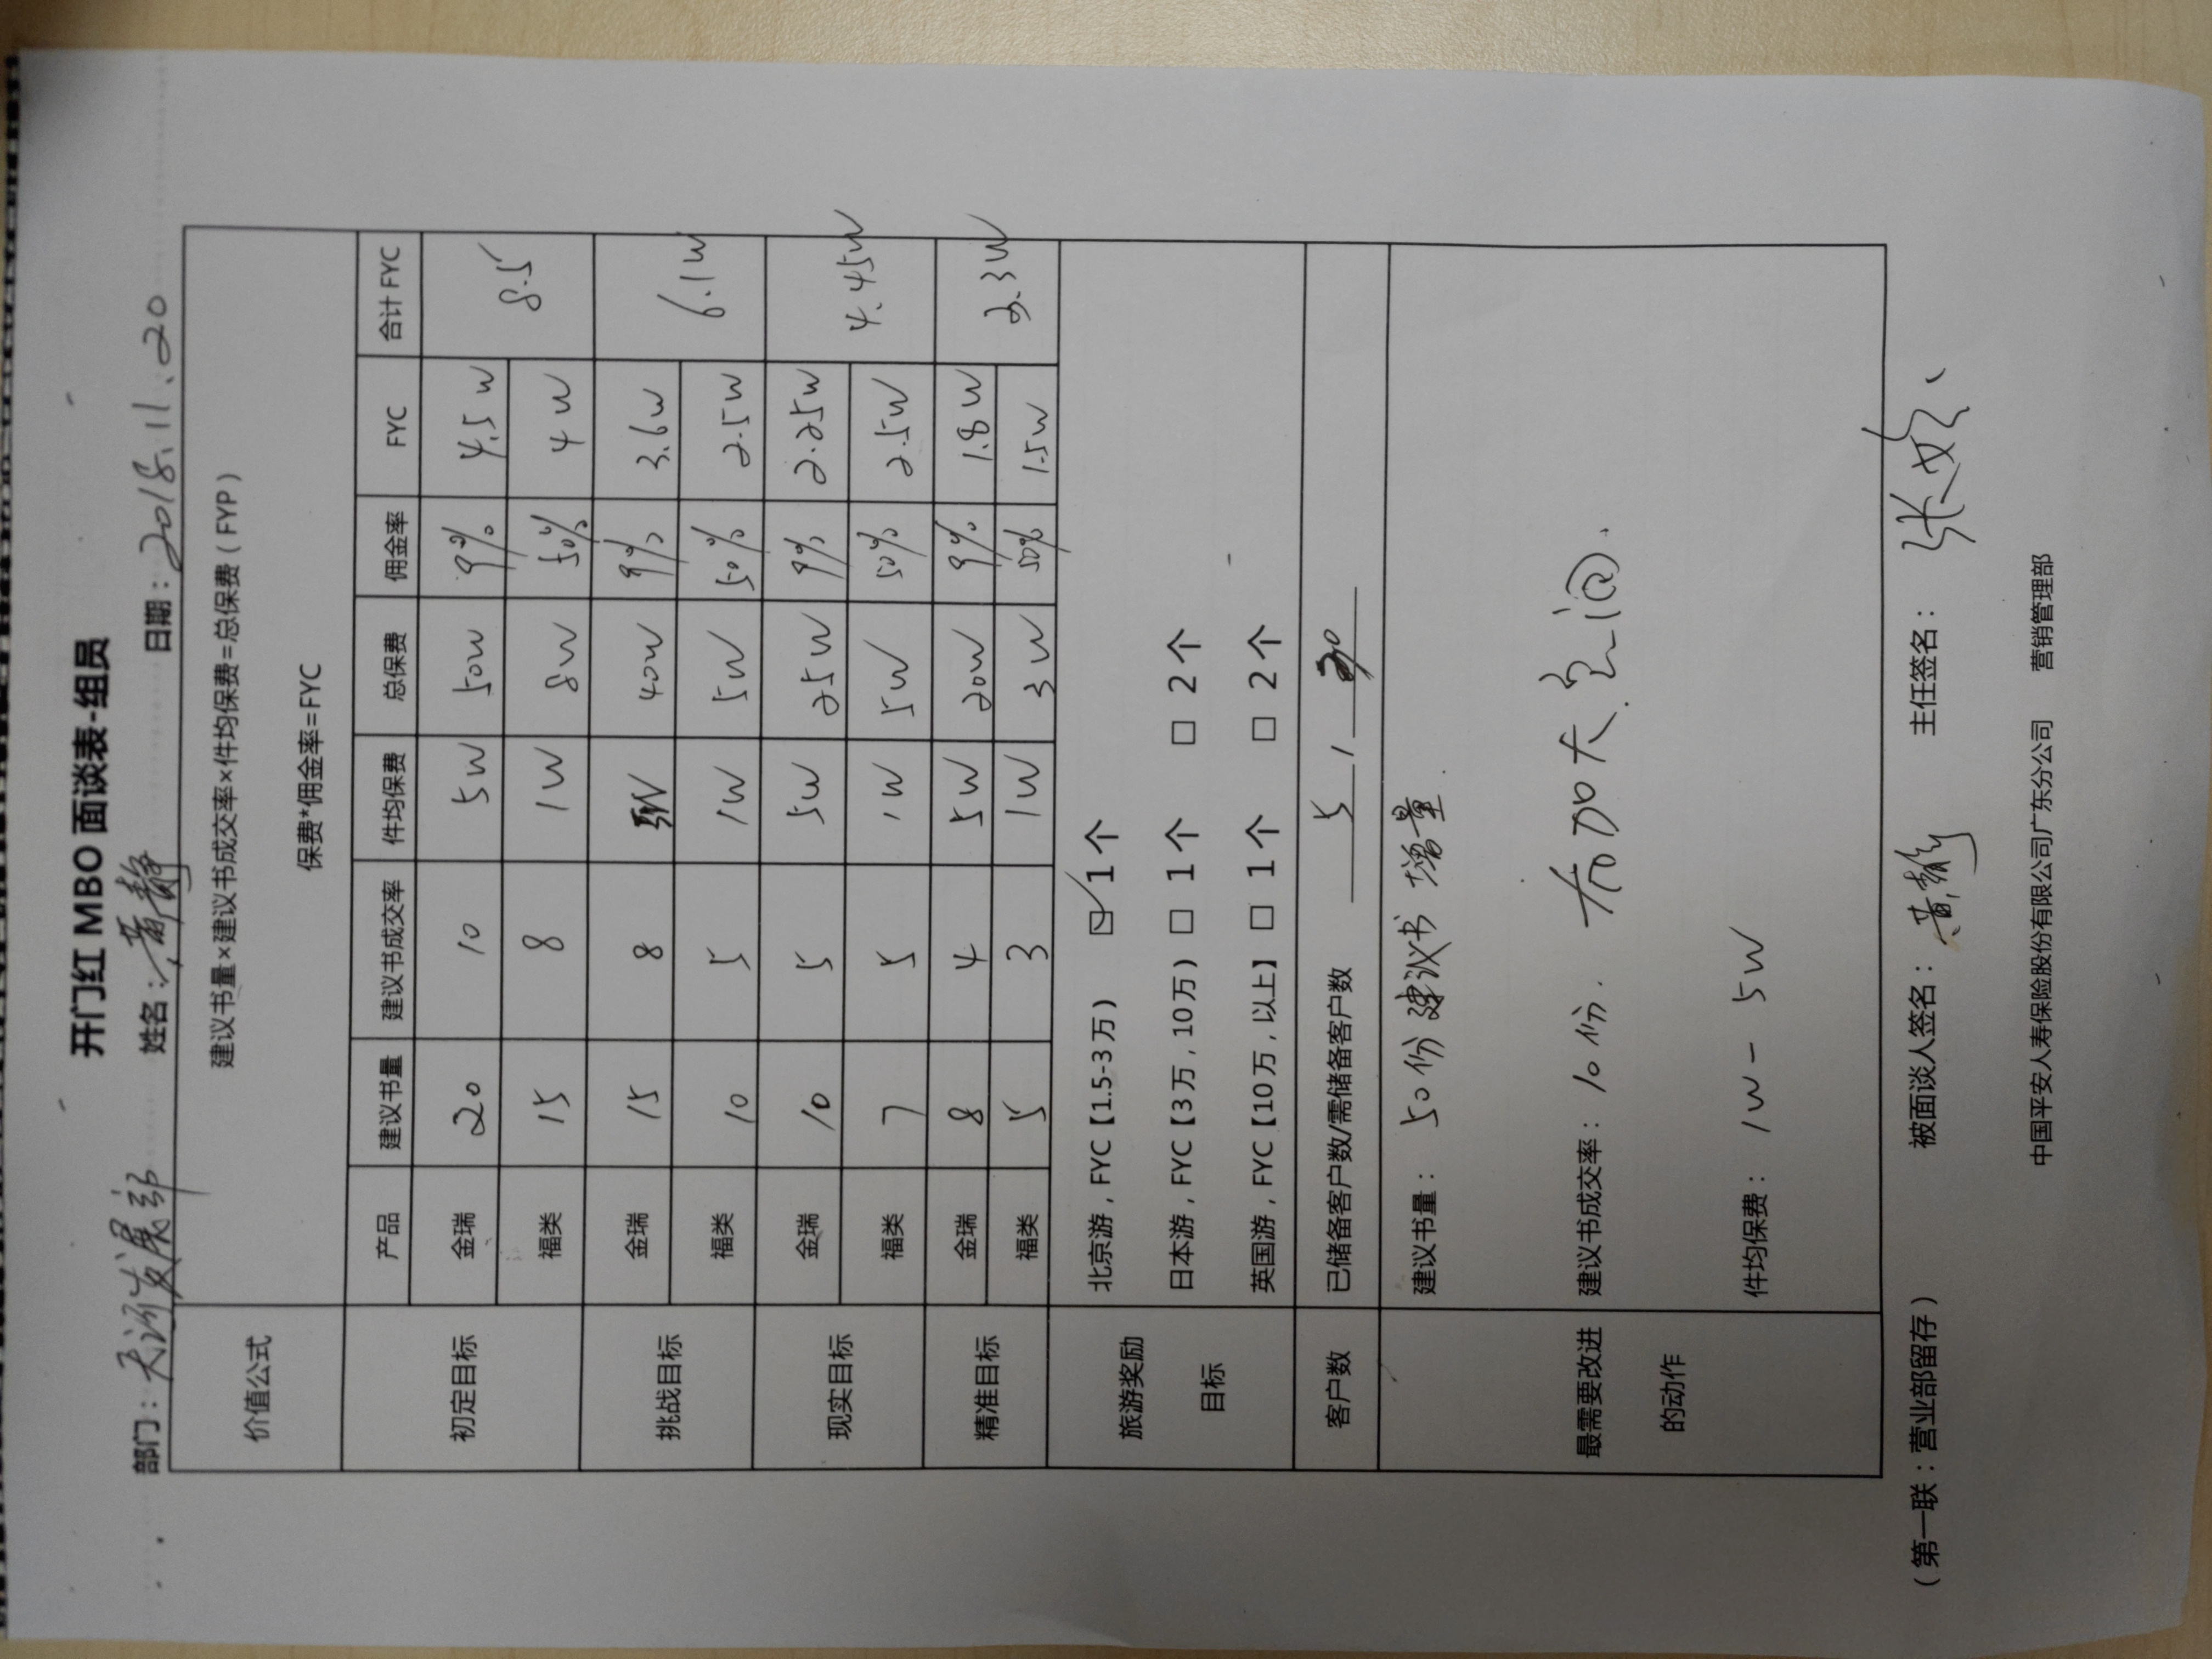 开门红 MBO 面谈表-组员
部门：天河发展部 姓名：黄静 日期：2018.11.20
价值公式 建议书量×建议书成交率×件均保费=总保费（FYP）
保费*佣金率=FYC
产品 建议书量 建议书成交率 件均保费 总保费 佣金率 FYC 合计 FYC
初定目标 金瑞 20 10 5W 50W 9% 4.5W 8.5
福类 15 8 1W 8W 50% 4W
挑战目标 金瑞 15 8 5W 40W 9% 3.6W 6.1W
福类 10 5 1W 5W 50% 2.5W
现实目标 金瑞 10 5 5W 25W 9% 2.25W 4.45W
福类 7 5 1W 5W 50% 2.5W
精准目标 金瑞 8 4 5W 20W 9% 1.8W 3.3W
福类 5 3 1W 3W 50% 1.5W
旅游奖励目标 北京游，FYC【1.5-3万） ☑ 1个
日本游，FYC【3万，10万） □ 1个 □ 2个
英国游，FYC【10万，以上】 □ 1个 □ 2个
客户数 已储备客户数/需储备客户数 5 / 20
最需要改进的动作 建议书量： 50份建议书 增量.
建议书成交率： 10份. 有加大空间.
件均保费： 1W - 5W
（第一联：营业部留存） 被面谈人签名：黄静 主任签名：张
中国平安人寿保险股份有限公司广东分公司 营销管理部